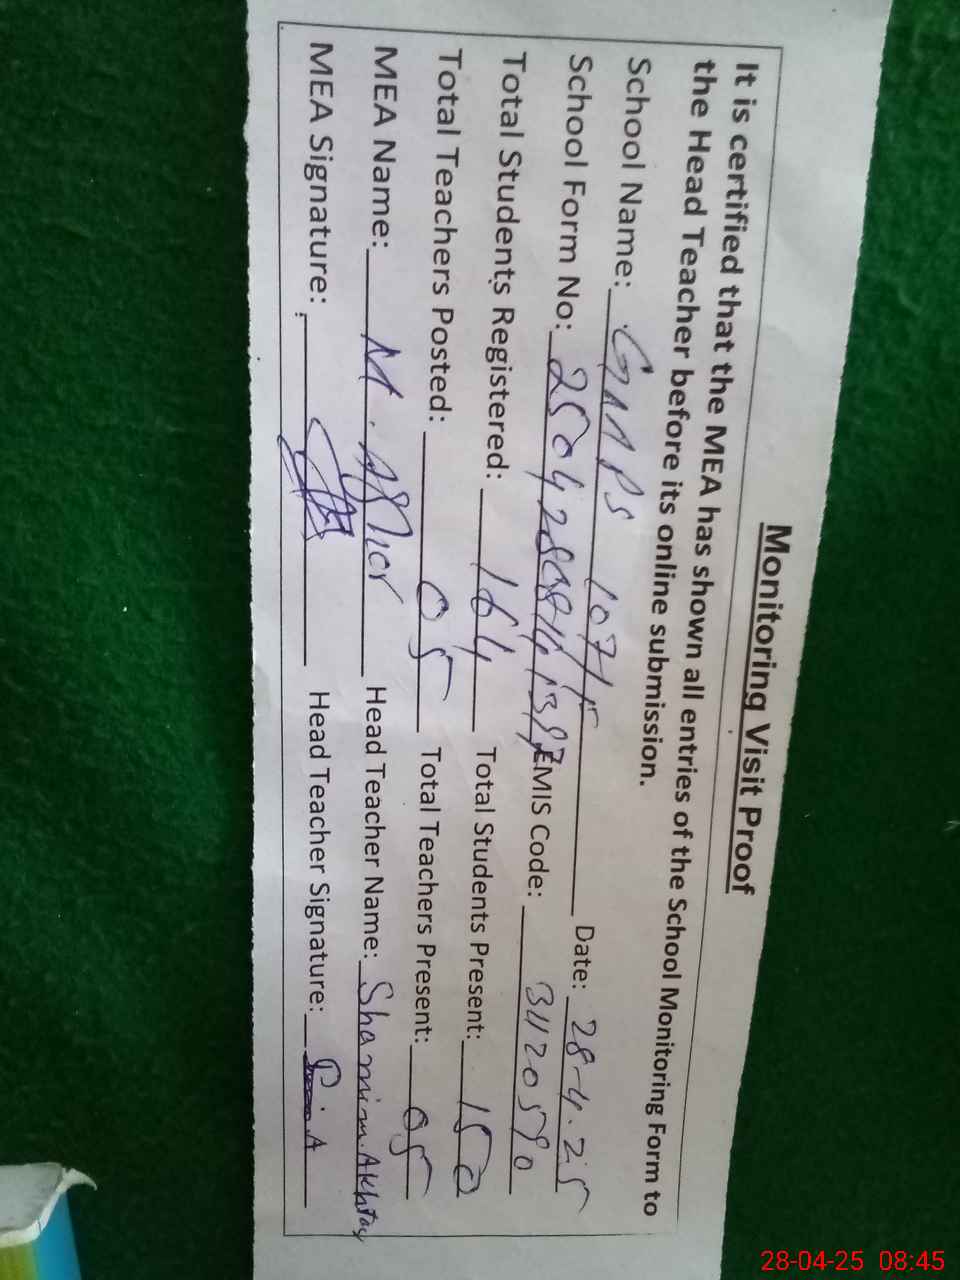 Monitoring Visit Proof
It is certified that the MEA has shown all entries of the School Monitoring Form to
the Head Teacher before its online submission.
School Name: GMPS 107/15 Date: 28-4-25
School Form No: EMIS Code: 34120590
Total Students Registered: 164 Total Students Present: 150
Total Teachers Posted: 05 Total Teachers Present: 05
MEA Name: M. Head Teacher Name: Shamim Akhtar
MEA Signature: Head Teacher Signature:
28-04-25 08:45